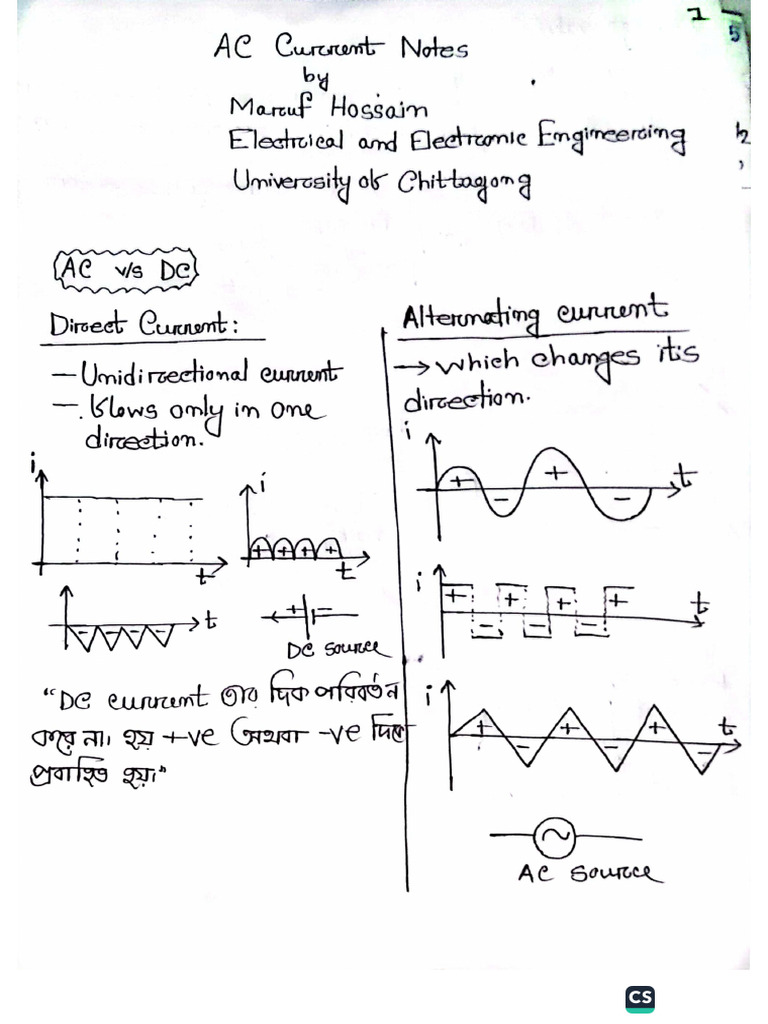 1
5
AC Current Notes
by
Maruf Hossain
Electrical and Electronic Engineering
University of Chittagong
AC v/s DC
Direct Current:
— Unidirectional current
— flows only in one
direction.
i
t
i
+ + + +
t
- - - -
t
+ -
DC source
"DC current তার দিক পরিবর্তন
করে না। হয় +ve অথবা -ve দিকে
প্রবাহিত হয়।"
Alternating current
→ which changes it's
direction.
i
+ - + -
t
i
+ + + +
- - -
t
i
+ + +
- - -
t
AC source
CS